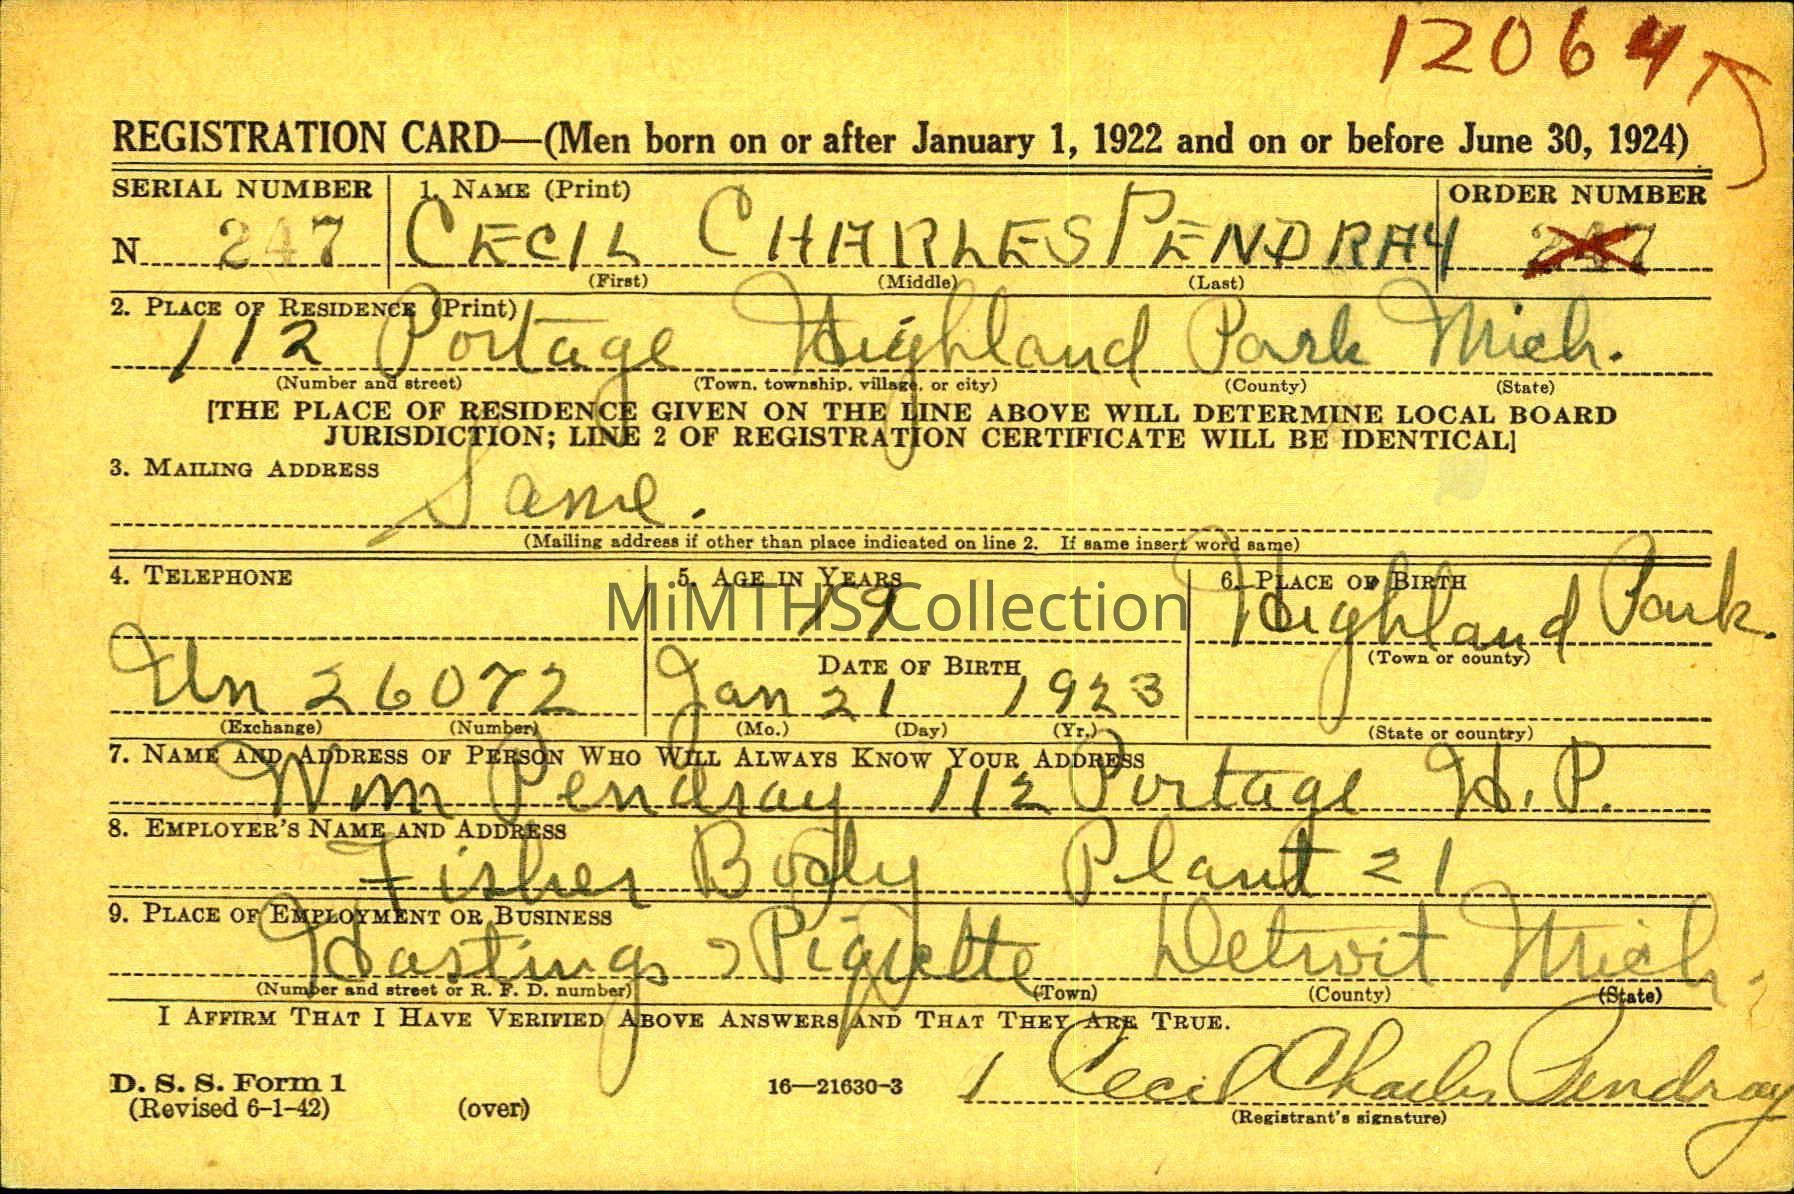 12064
REGISTRATION CARD—(Men born on or after January 1, 1922 and on or before June 30, 1924)
SERIAL NUMBER 1. NAME (Print) ORDER NUMBER
N 247 CECIL CHARLES PENDRAY 247
(First) (Middle) (Last)
2. PLACE OF RESIDENCE (Print)
112 Portage Highland Park Mich.
(Number and street) (Town, township, village, or city) (County) (State)
[THE PLACE OF RESIDENCE GIVEN ON THE LINE ABOVE WILL DETERMINE LOCAL BOARD
JURISDICTION; LINE 2 OF REGISTRATION CERTIFICATE WILL BE IDENTICAL]
3. MAILING ADDRESS
Same.
(Mailing address if other than place indicated on line 2. If same insert word same)
4. TELEPHONE 5. AGE IN YEARS 6. PLACE OF BIRTH
19 Highland Park.
MiMTHS Collection
DATE OF BIRTH (Town or county)
Un 26072 Jan 21 1923
(Exchange) (Number) (Mo.) (Day) (Yr.) (State or country)
7. NAME AND ADDRESS OF PERSON WHO WILL ALWAYS KNOW YOUR ADDRESS
Wm Pendray 112 Portage H. P.
8. EMPLOYER'S NAME AND ADDRESS
Fisher Body Plant 21
9. PLACE OF EMPLOYMENT OR BUSINESS
Hastings Piquette Detroit Mich.
(Number and street or R. F. D. number) (Town) (County) (State)
I AFFIRM THAT I HAVE VERIFIED ABOVE ANSWERS AND THAT THEY ARE TRUE.
D. S. S. Form 1 16—21630-3 Cecil Charles Pendray
(Revised 6-1-42) (over) (Registrant's signature)